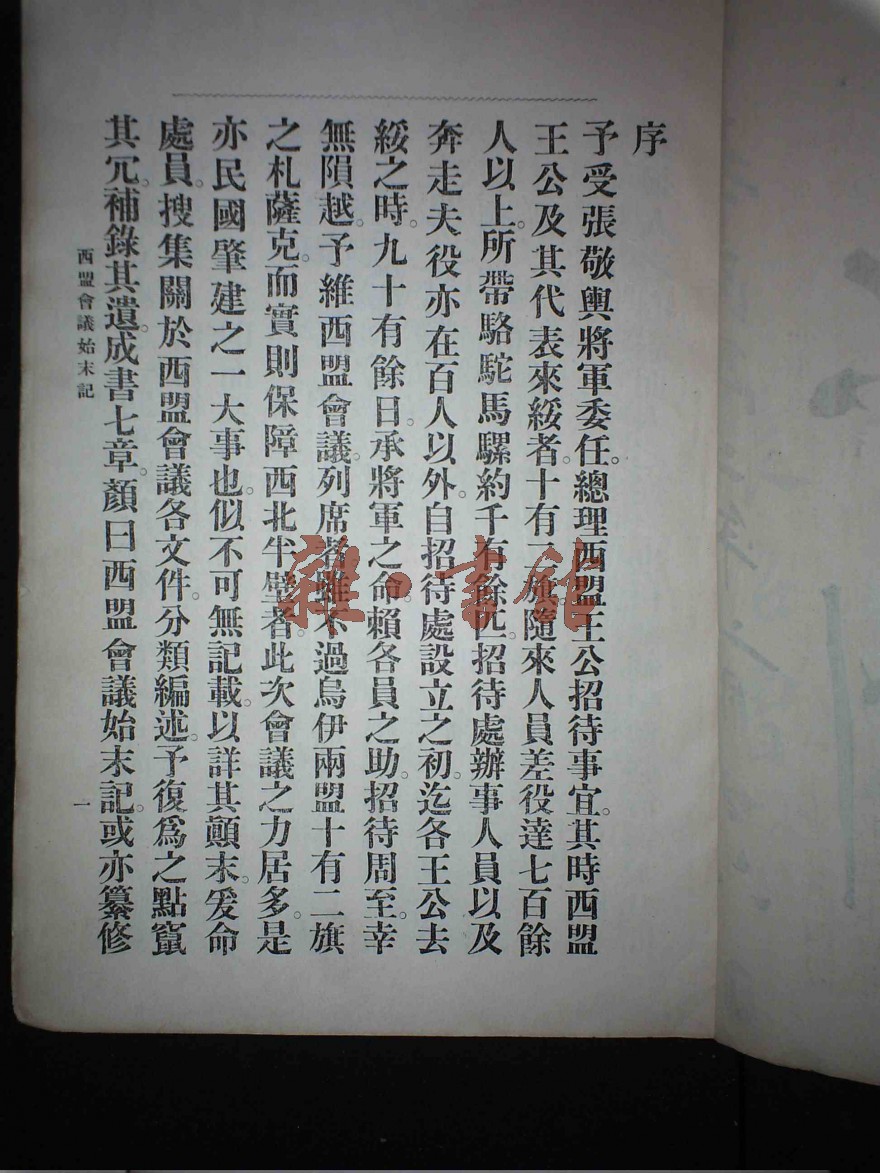 序
予受張敬輿將軍委任。總理西盟王公招待事宜。其時西盟
王公及其代表來綏者。十有二旗。隨來人員差役達七百餘
人以上。所帶駱駝馬騾約千有餘匹。招待處辦事人員以及
奔走夫役亦在百人以外。自招待處設立之初。迄各王公去
綏之時。九十有餘日。承將軍之命。賴各員之助。招待周至。幸
無隕越。予維西盟會議。列席者雖不過烏伊兩盟十有二旗
之札薩克。而實則保障西北半壁者。此次會議之力居多。是
亦民國肇建之一大事也。似不可無記載。以詳其顚末。爰命
處員。搜集關於西盟會議各文件。分類編述。予復爲之點竄
其冗。補錄其遺。成書七章。顏曰西盟會議始末記。或亦纂修
西盟會議始末記
一
雜·書館